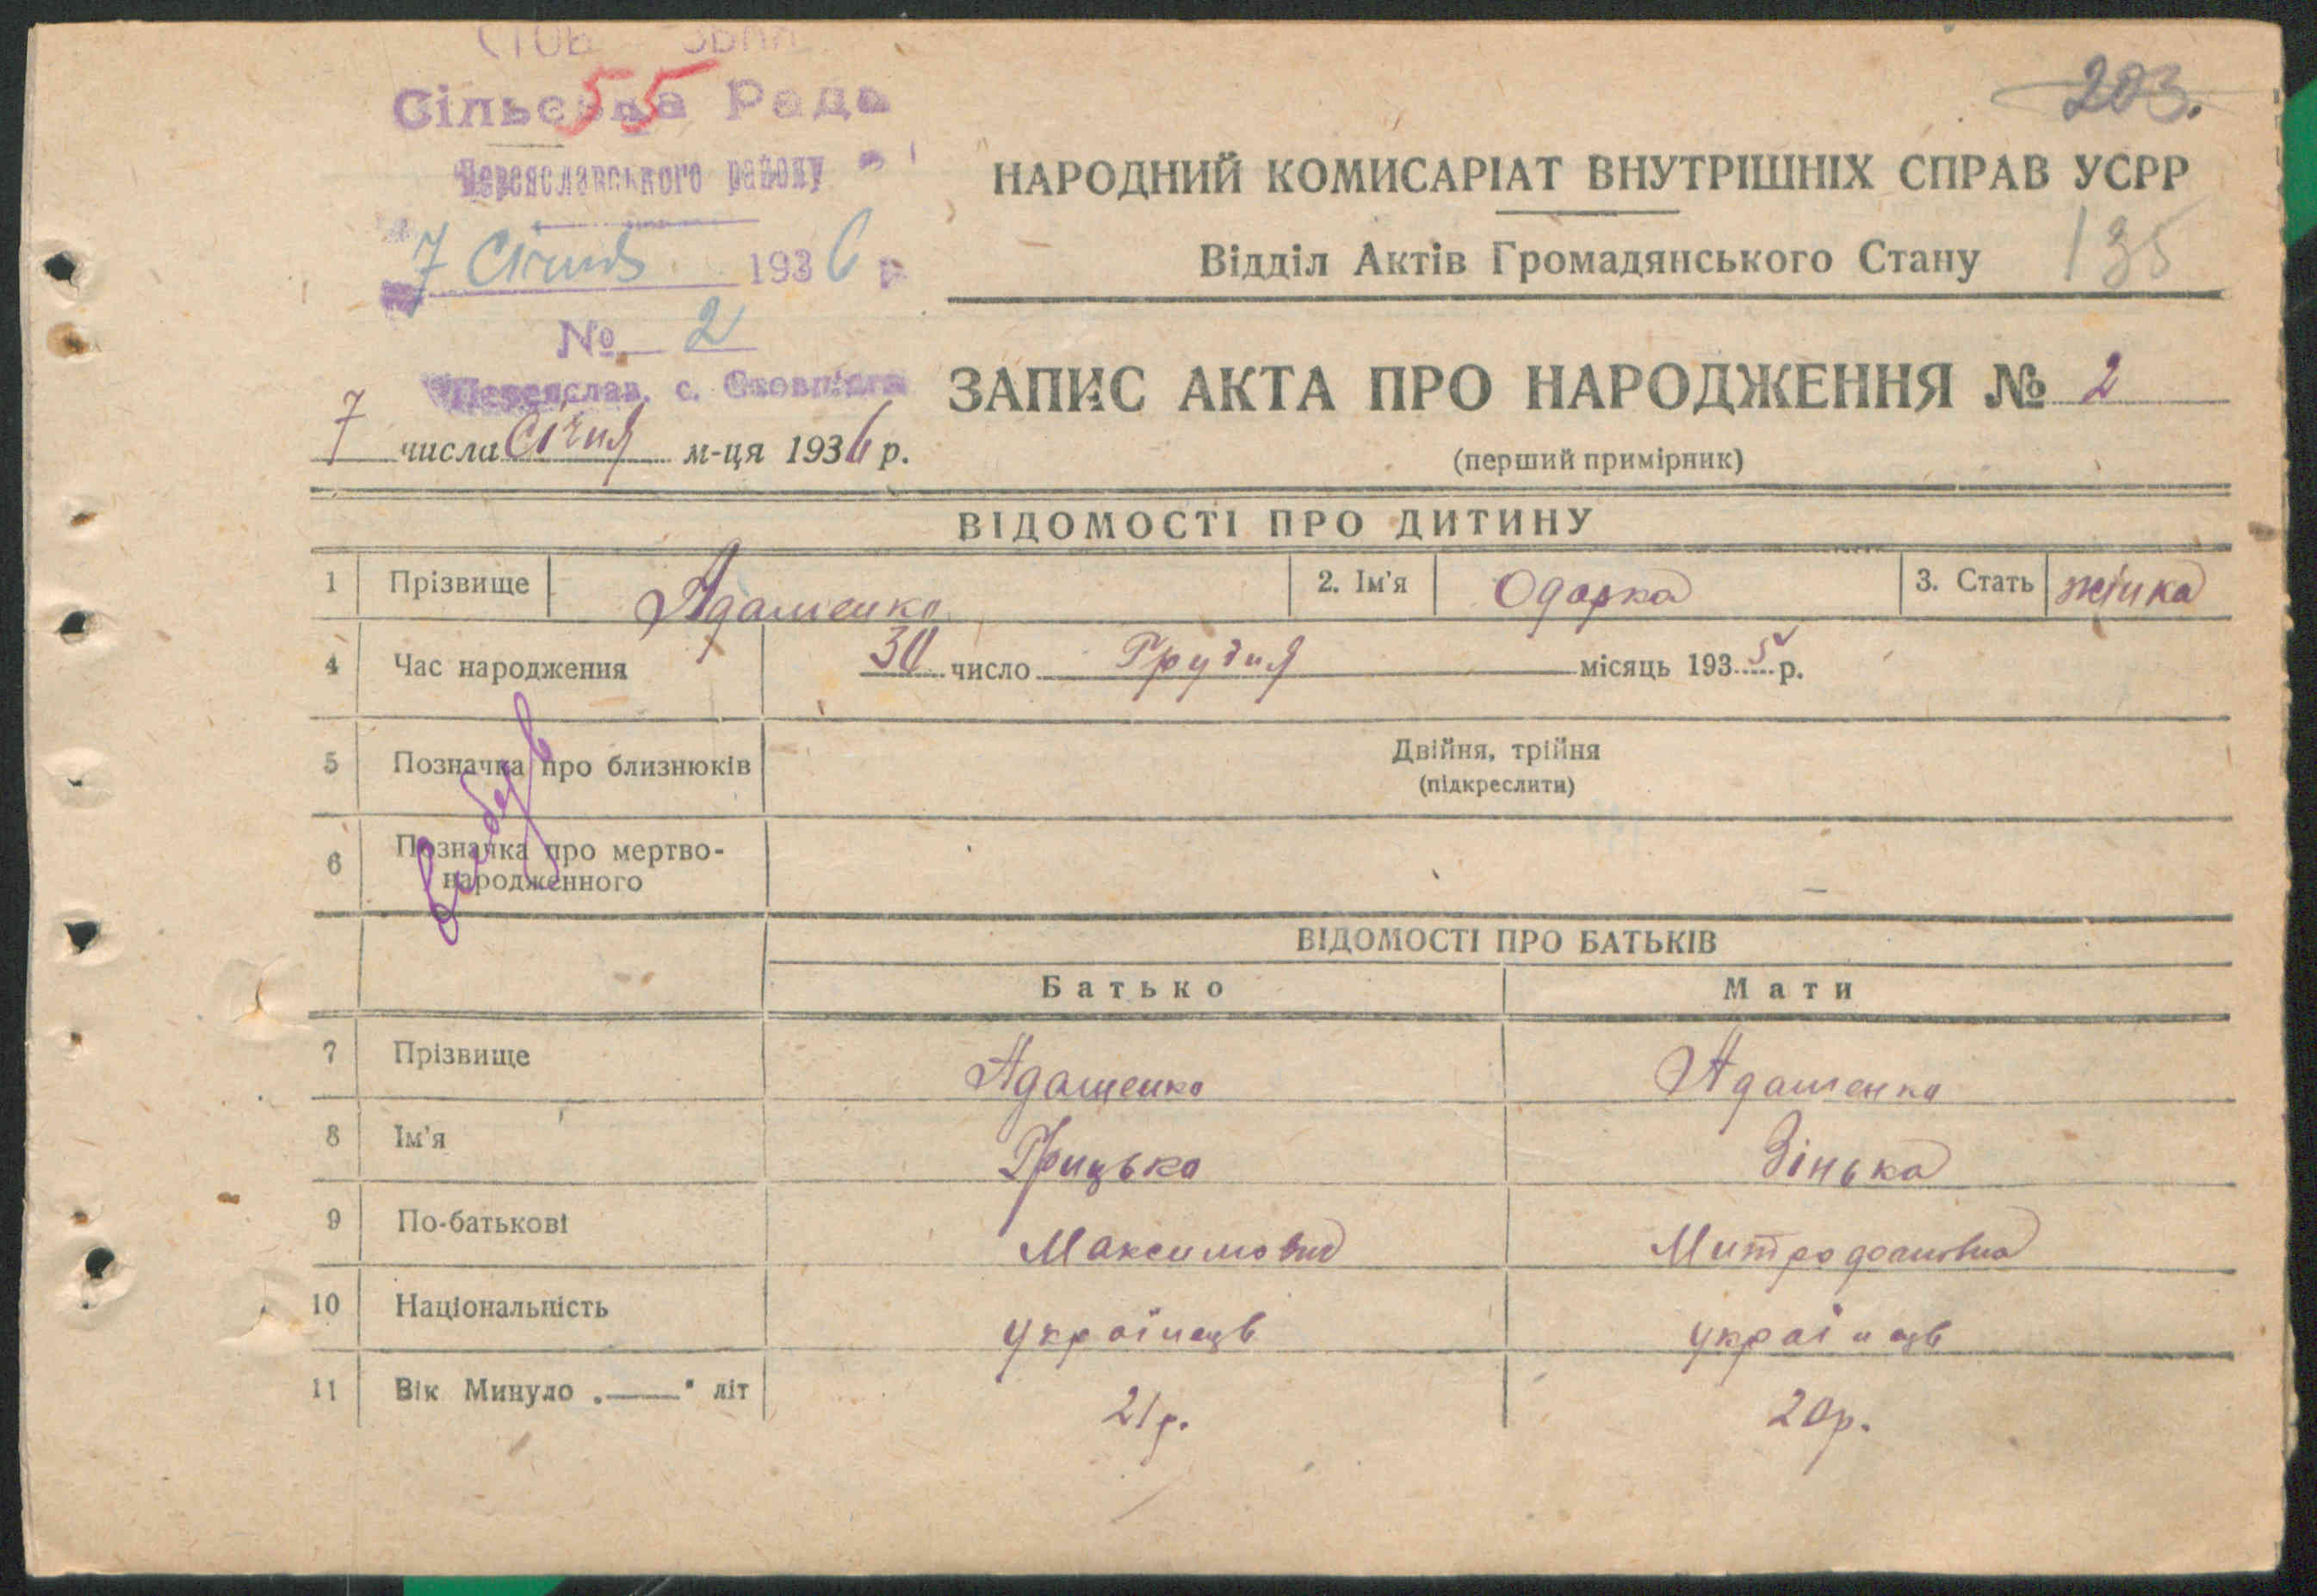 55
Сільська Рада
203.
Переяславського району
НАРОДНИЙ КОМИСАРІАТ ВНУТРІШНІХ СПРАВ УСРР
7 Січня 1936 р.
Відділ Актів Громадянського Стану 135
№ 2
Переяслав, с.
ЗАПИС АКТА ПРО НАРОДЖЕННЯ № 2
7 числа Січня м-ця 1936 р.
(перший примірник)
ВІДОМОСТІ ПРО ДИТИНУ
1 Прізвище Адаменко 2. Ім'я Одарка 3. Стать жінка
4 Час народження 30 число Грудня місяць 1935 р.
5 Позначка про близнюків Двійня, трійня
(підкреслити)
6 Позначка про мертво-
народженного
ВІДОМОСТІ ПРО БАТЬКІВ
Батько Мати
7 Прізвище Адаменко Адаменко
8 Ім'я Грицько Зінька
9 По-батькові Максимович
10 Національність українець українець
11 Вік Минуло „——" літ 21 р. 20 р.